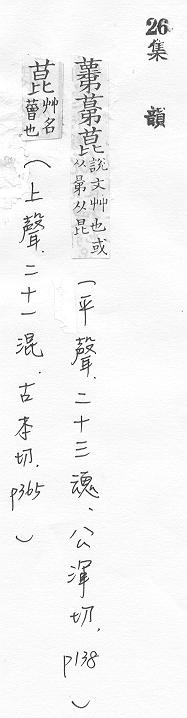 26 集韻
菎說文艸也或从从昆（平聲、二十三魂、公渾切、p138）
菎艸名也（上聲、二十一混、古本切、p365）